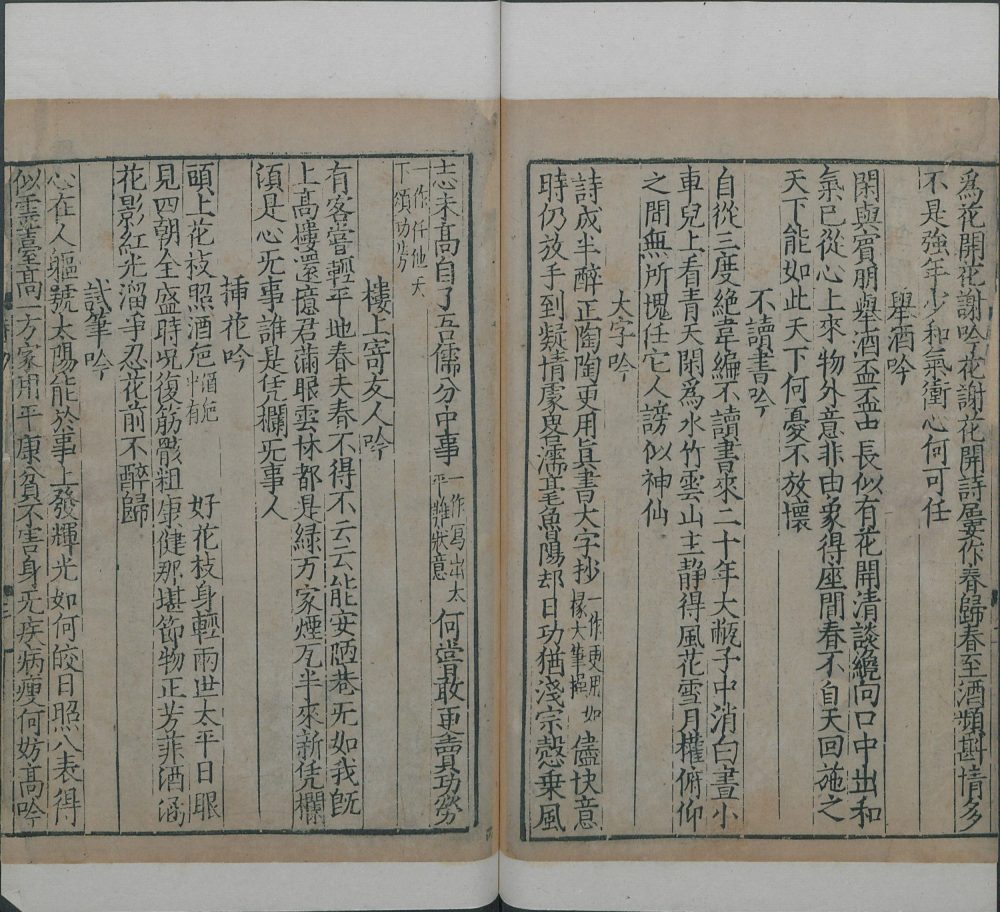 為花開花謝吟花謝花開詩屢作春歸春至酒頻斟情多
不是強年少和氣衝心何可任
舉酒吟
閑與賓朋舉酒盃盃中長似有花開清談纔向口中出和
氣已從心上來物外意非由象得座間春不自天回施之
天下能如此天下何憂不放懷
不讀書吟
自從三度絶韋編不讀書來二十年大甋子中消白晝小
車兒上看青天閑為水竹雲山主静得風花雪月權俯仰
之間無所愧任它人謗似神仙
大字吟
詩成半醉正陶陶更用真書大字抄一作更用如椽大筆揮儘快意
時仍放手到凝情處略濡毫魯陽却日功猶淺宗慤乗風
志未高自了吾儒分中事一作寫出太平難狀意何嘗敢更賣功勞
一作仟他天下頌功劳
樓上寄友人吟
有客嘗輕平地春夫春不得不云云能安陋巷无如我旣
上高樓還憶君滿眼雲林都是緑万家煙瓦半來新凭欄
須是心无事誰是凭欄无事人
揷花吟
頭上花枝照酒巵酒巵中有好花枝身輕兩世太平日眼
見四朝全盛時况復筋骸粗康健那堪節物正芳菲酒涵
花影紅光溜争忍花前不醉歸
試筆吟
心在人軀號太陽能於事上發輝光如何皎日照八表得
似靈臺高一方家用平康貧不害身无疾病瘦何妨高吟